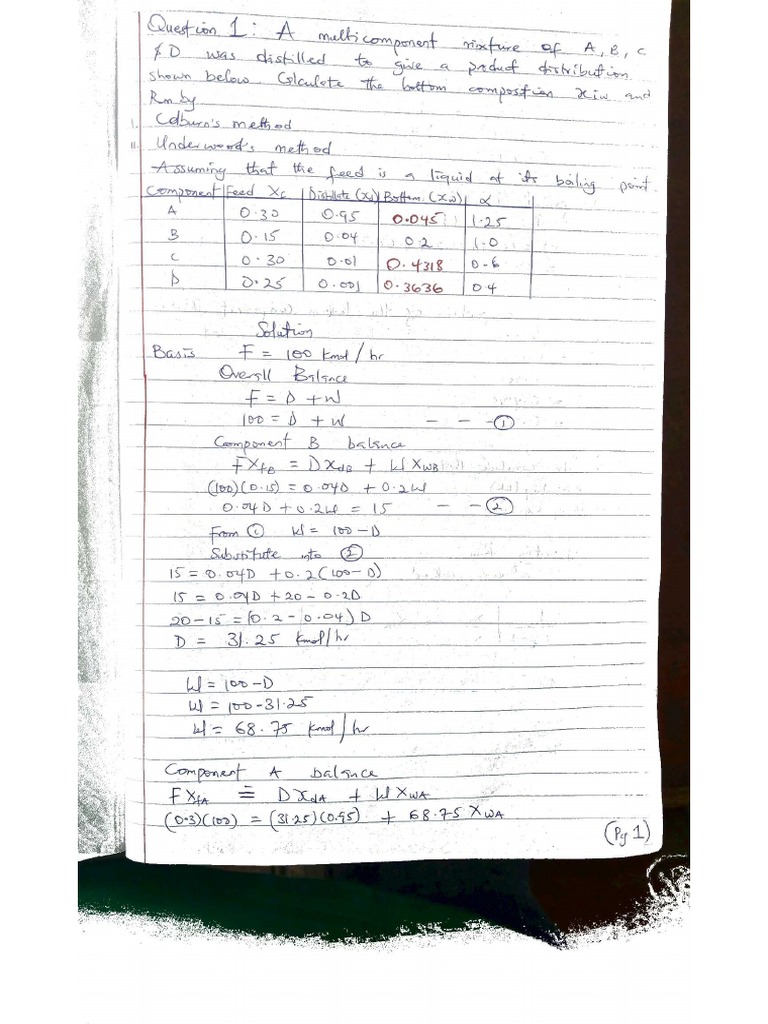 Question 1: A multicomponent mixture of A, B, C
& D was distilled to give a product distribution
shown below. Calculate the bottom composition xiw and
Rm by
i. Colburn's method
ii. Underwood's method
Assuming that the feed is a liquid at its boiling point
Component Feed Xf Distillate (Xd) Bottom (Xw) α
A 0.30 0.95 0.045 1.25
B 0.15 0.04 0.2 1.0
C 0.30 0.01 0.4318 0.6
D 0.25 0.001 0.3636 0.4
Solution
Basis F = 100 kmol/hr
Overall Balance
F = D + W
100 = D + W - - - ①
Component B balance
FXfB = DXdB + WXWB
(100)(0.15) = 0.04D + 0.2W
0.04D + 0.2W = 15 - - ②
From ① W = 100 - D
Substitute into ②
15 = 0.04D + 0.2(100 - D)
15 = 0.04D + 20 - 0.2D
20 - 15 = (0.2 - 0.04) D
D = 31.25 kmol/hr
W = 100 - D
W = 100 - 31.25
W = 68.75 kmol/hr
Component A balance
FXfA = DXdA + WXWA
(0.3)(100) = (31.25)(0.95) + 68.75 XWA
(Pg 1)